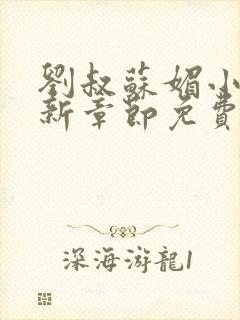 劉叔蘇媚小
新章節免費
深海游龍1